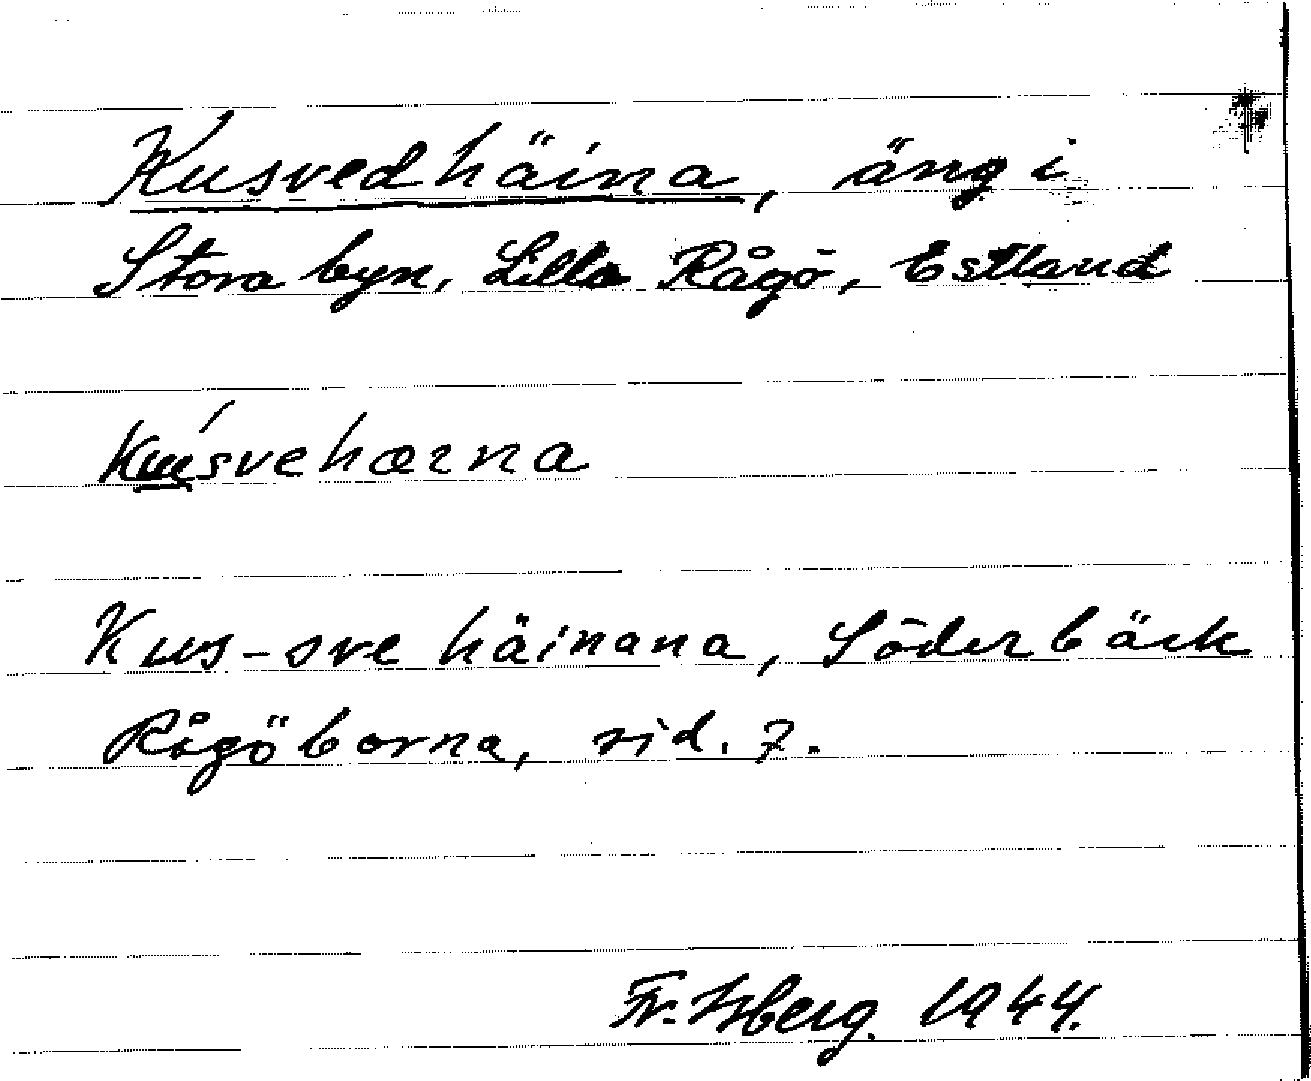 Kusvedhäina, äng i
Stora byn, Lilla Rågö, Estland
Kusvehærna
Kus-sve häinana, Söderbäck
Rågöborna, sid. 7.
Fr. Isberg. 1944.